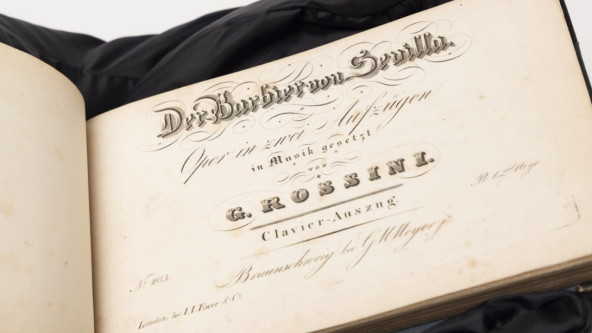 Der Barbier von Sevilla.
Oper in zwei Aufzügen
in Musik gesetzt
von
G. ROSSINI.
Clavier-Auszug.
Braunschweig bei G M Meyer jr
London, bei I.I. Ewer & Co